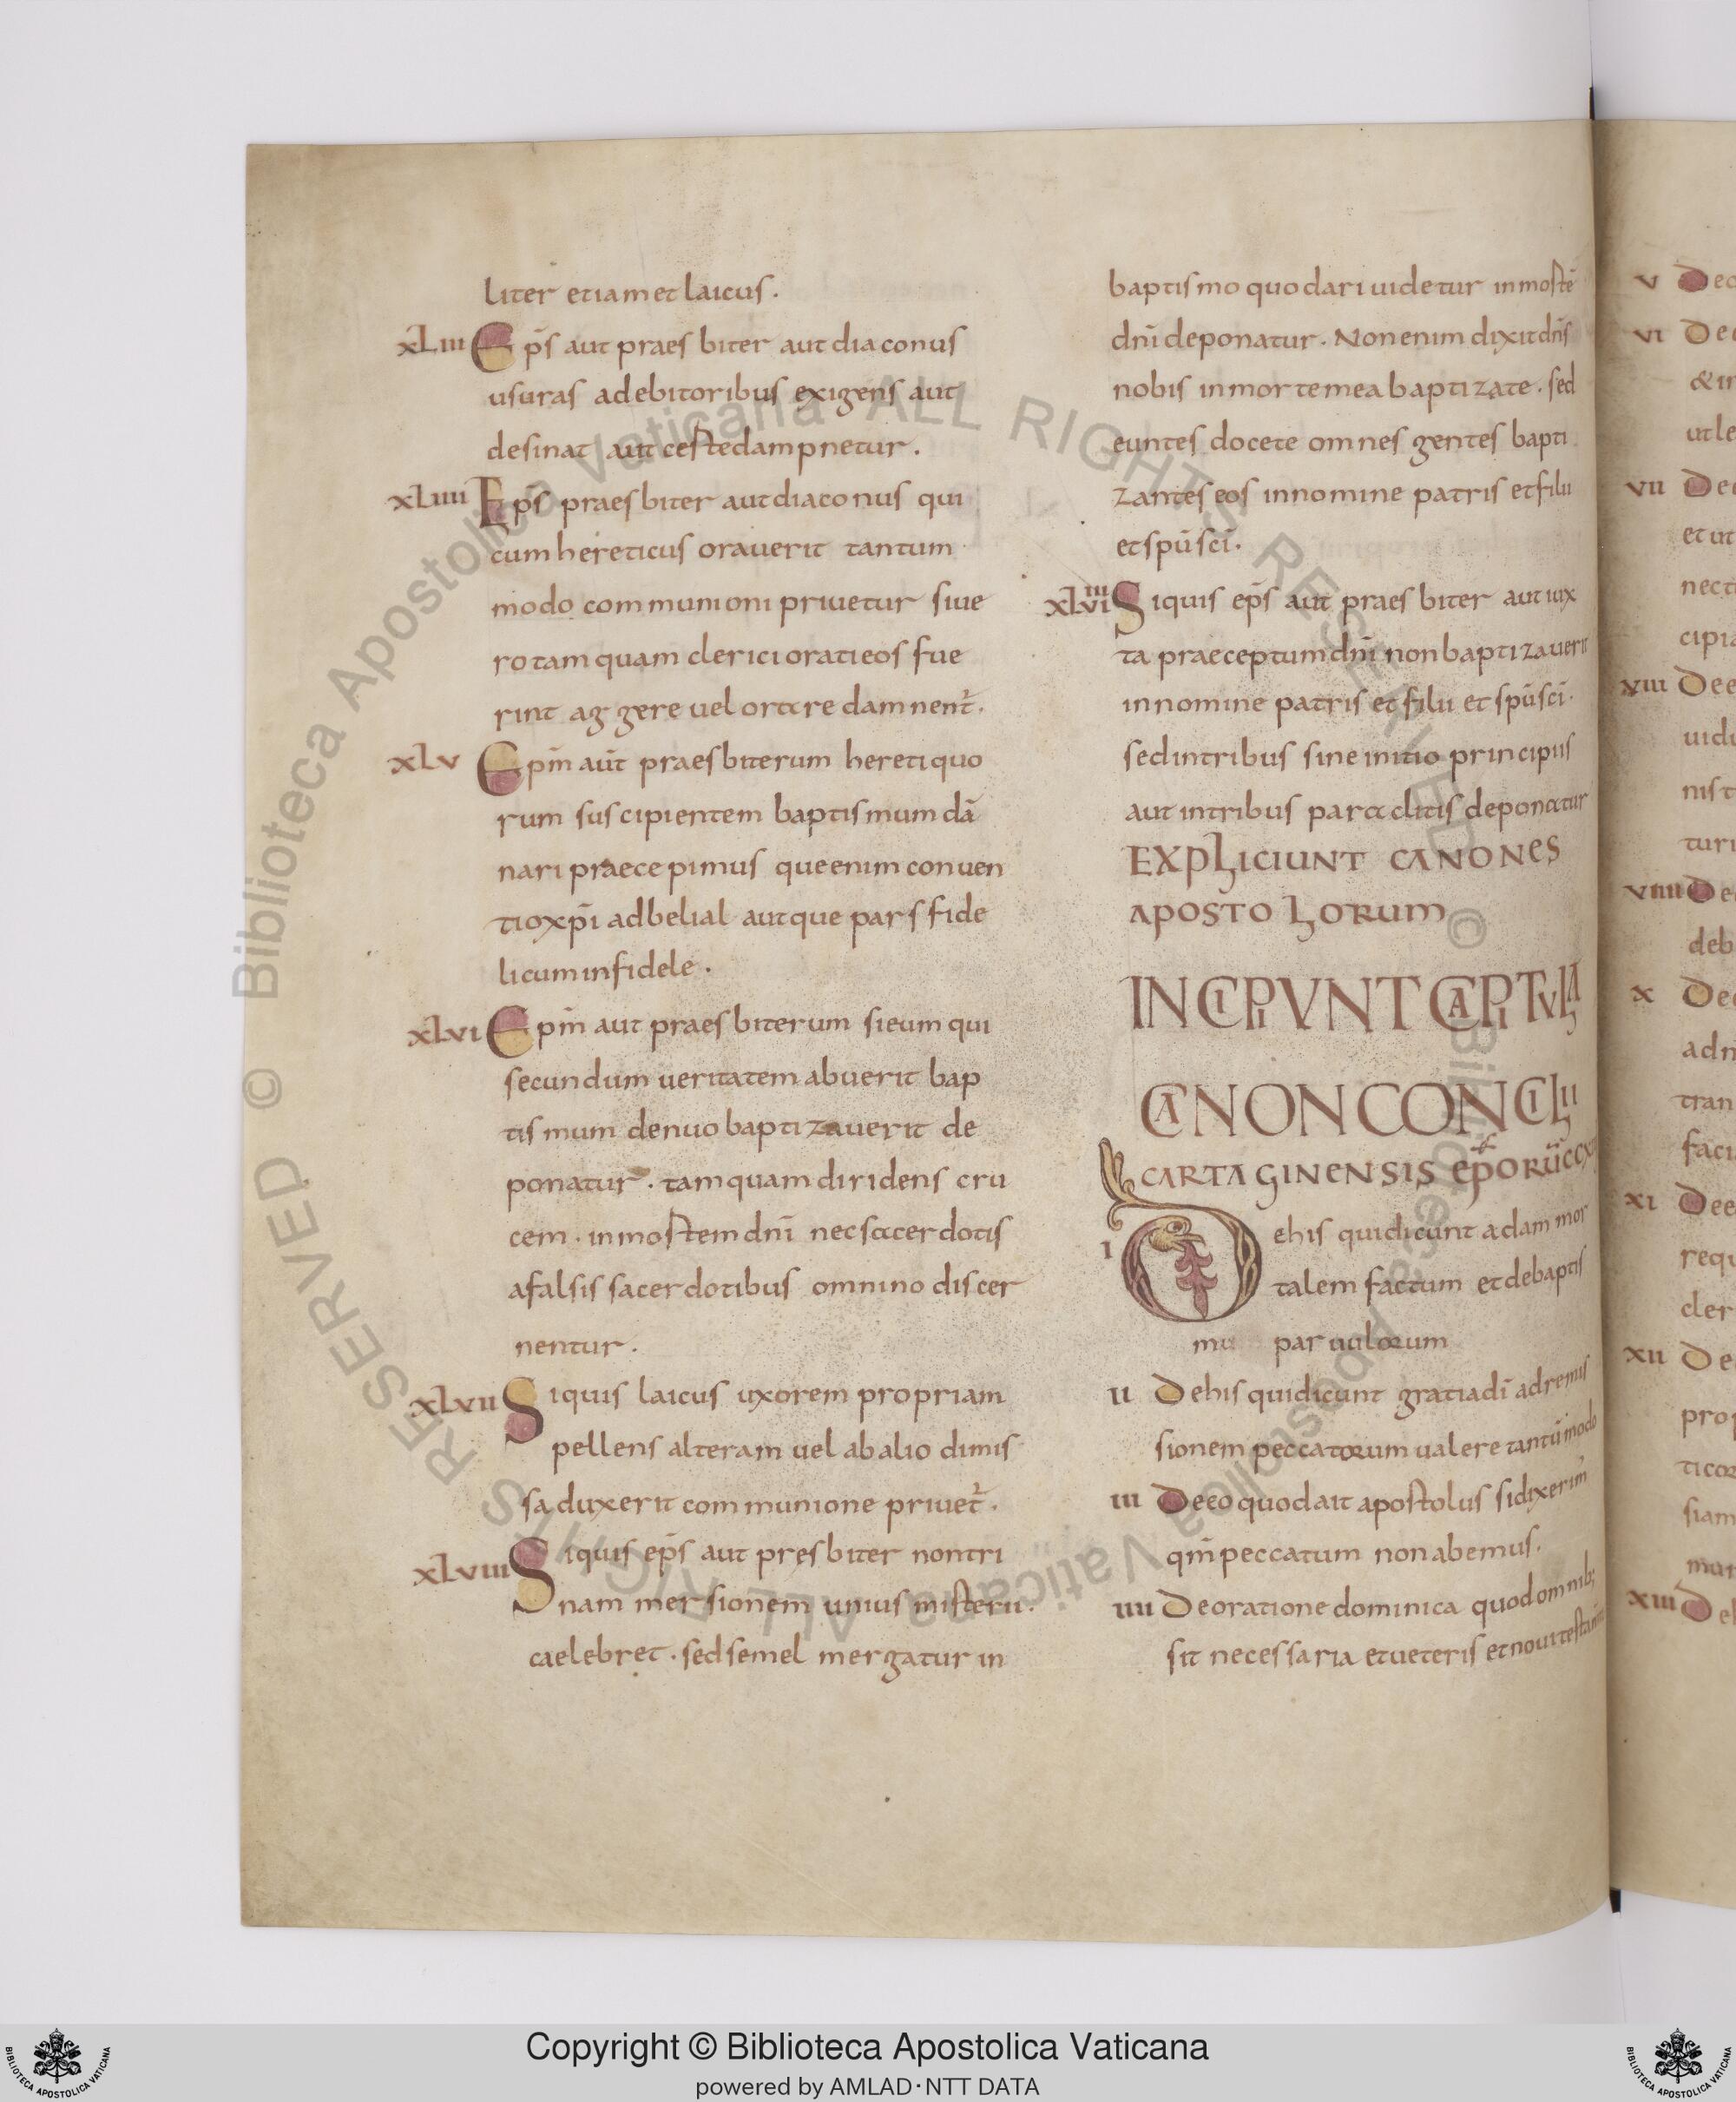 liter etiam et laicus.
xliii Ep̄s aut praesbiter aut diaconus
usuras adebitoribus exigens aut
desinat aut cestedampnetur.
xliiii Ep̄s praesbiter aut diaconus qui
cum hereticus orauerit tantum
modo communioni priuetur siue
ro tamquam clerici oratieos fue
rint ag gere uel orare damnent̄.
xlv Ep̄m aūt praesbiterum heretiquo
rum suscipientem baptismum dā
nari praecepimus que enim conuen
tio xp̄i ad belial aut que pars fide
li cum infidele.
xlvi Ep̄m aut praesbiterum sieum qui
secundum ueritatem abuerit bap
tismum denuo baptizauerit de
ponatur. tamquam diridens cru
cem. in mostem dn̄i nec sacerdotis
a falsis sacerdotibus omnino discer
nentur.
xlvii Siquis laicus uxorem propriam
pellens alteram uel ab alio dimis
sa duxerit communione priuet̄.
xlviii Siquis ep̄s aut presbiter non tri
nam mersionem unius misterii.
caelebret. sed semel mergatur in
baptismo quo dari uidetur in mostē
dn̄i deponatur. Non enim dixit dn̄s
nobis in morte mea baptizate. sed
euntes docete omnes gentes bapti
zantes eos in nomine patris et filii
et sp̄u sc̄i.
xlviiii Siquis ep̄s aut praesbiter aut iux
ta praeceptum dn̄i non baptizauerit
in nomine patris et filii et sp̄u sc̄i.
sed in tribus sine initio principiis
aut in tribus paraclitis deponatur
EXPLICIUNT CANONES
APOSTOLORUM
INCIPIVNT CAPITVLA
CANON CONCILII
CARTAGINENSIS EP̄ORŪ CCX
I De his qui dicunt adam mor
talem factum et de baptis
mu paruulorum
II De his qui dicunt gratia dī ad remis
sionem peccatorum ualere tantū modo
III De eo quod ait apostolus si dixerim̄
qm̄ peccatum non abemus.
IIII De oratione dominica quod omnib;
sit necessaria et ueteris et noui testam̄
V Deo
VI De e
& in
ut le
VII De
et ut
nec
cipia
VIII De e
uidu
nis t
turi
VIIII De
deb
X De
adm
tran
faci
XI De e
requ
cler
XII De
prop
ticor
siam
mun
XIII De
© Biblioteca Apostolica Vaticana ALL RIGHTS RESERVED © Biblioteca Apostolica Vaticana ALL RIGHTS RESERVED
Copyright © Biblioteca Apostolica Vaticana
powered by AMLAD·NTT DATA
BIBLIOTECA APOSTOLICA VATICANA
BIBLIOTECA APOSTOLICA VATICANA